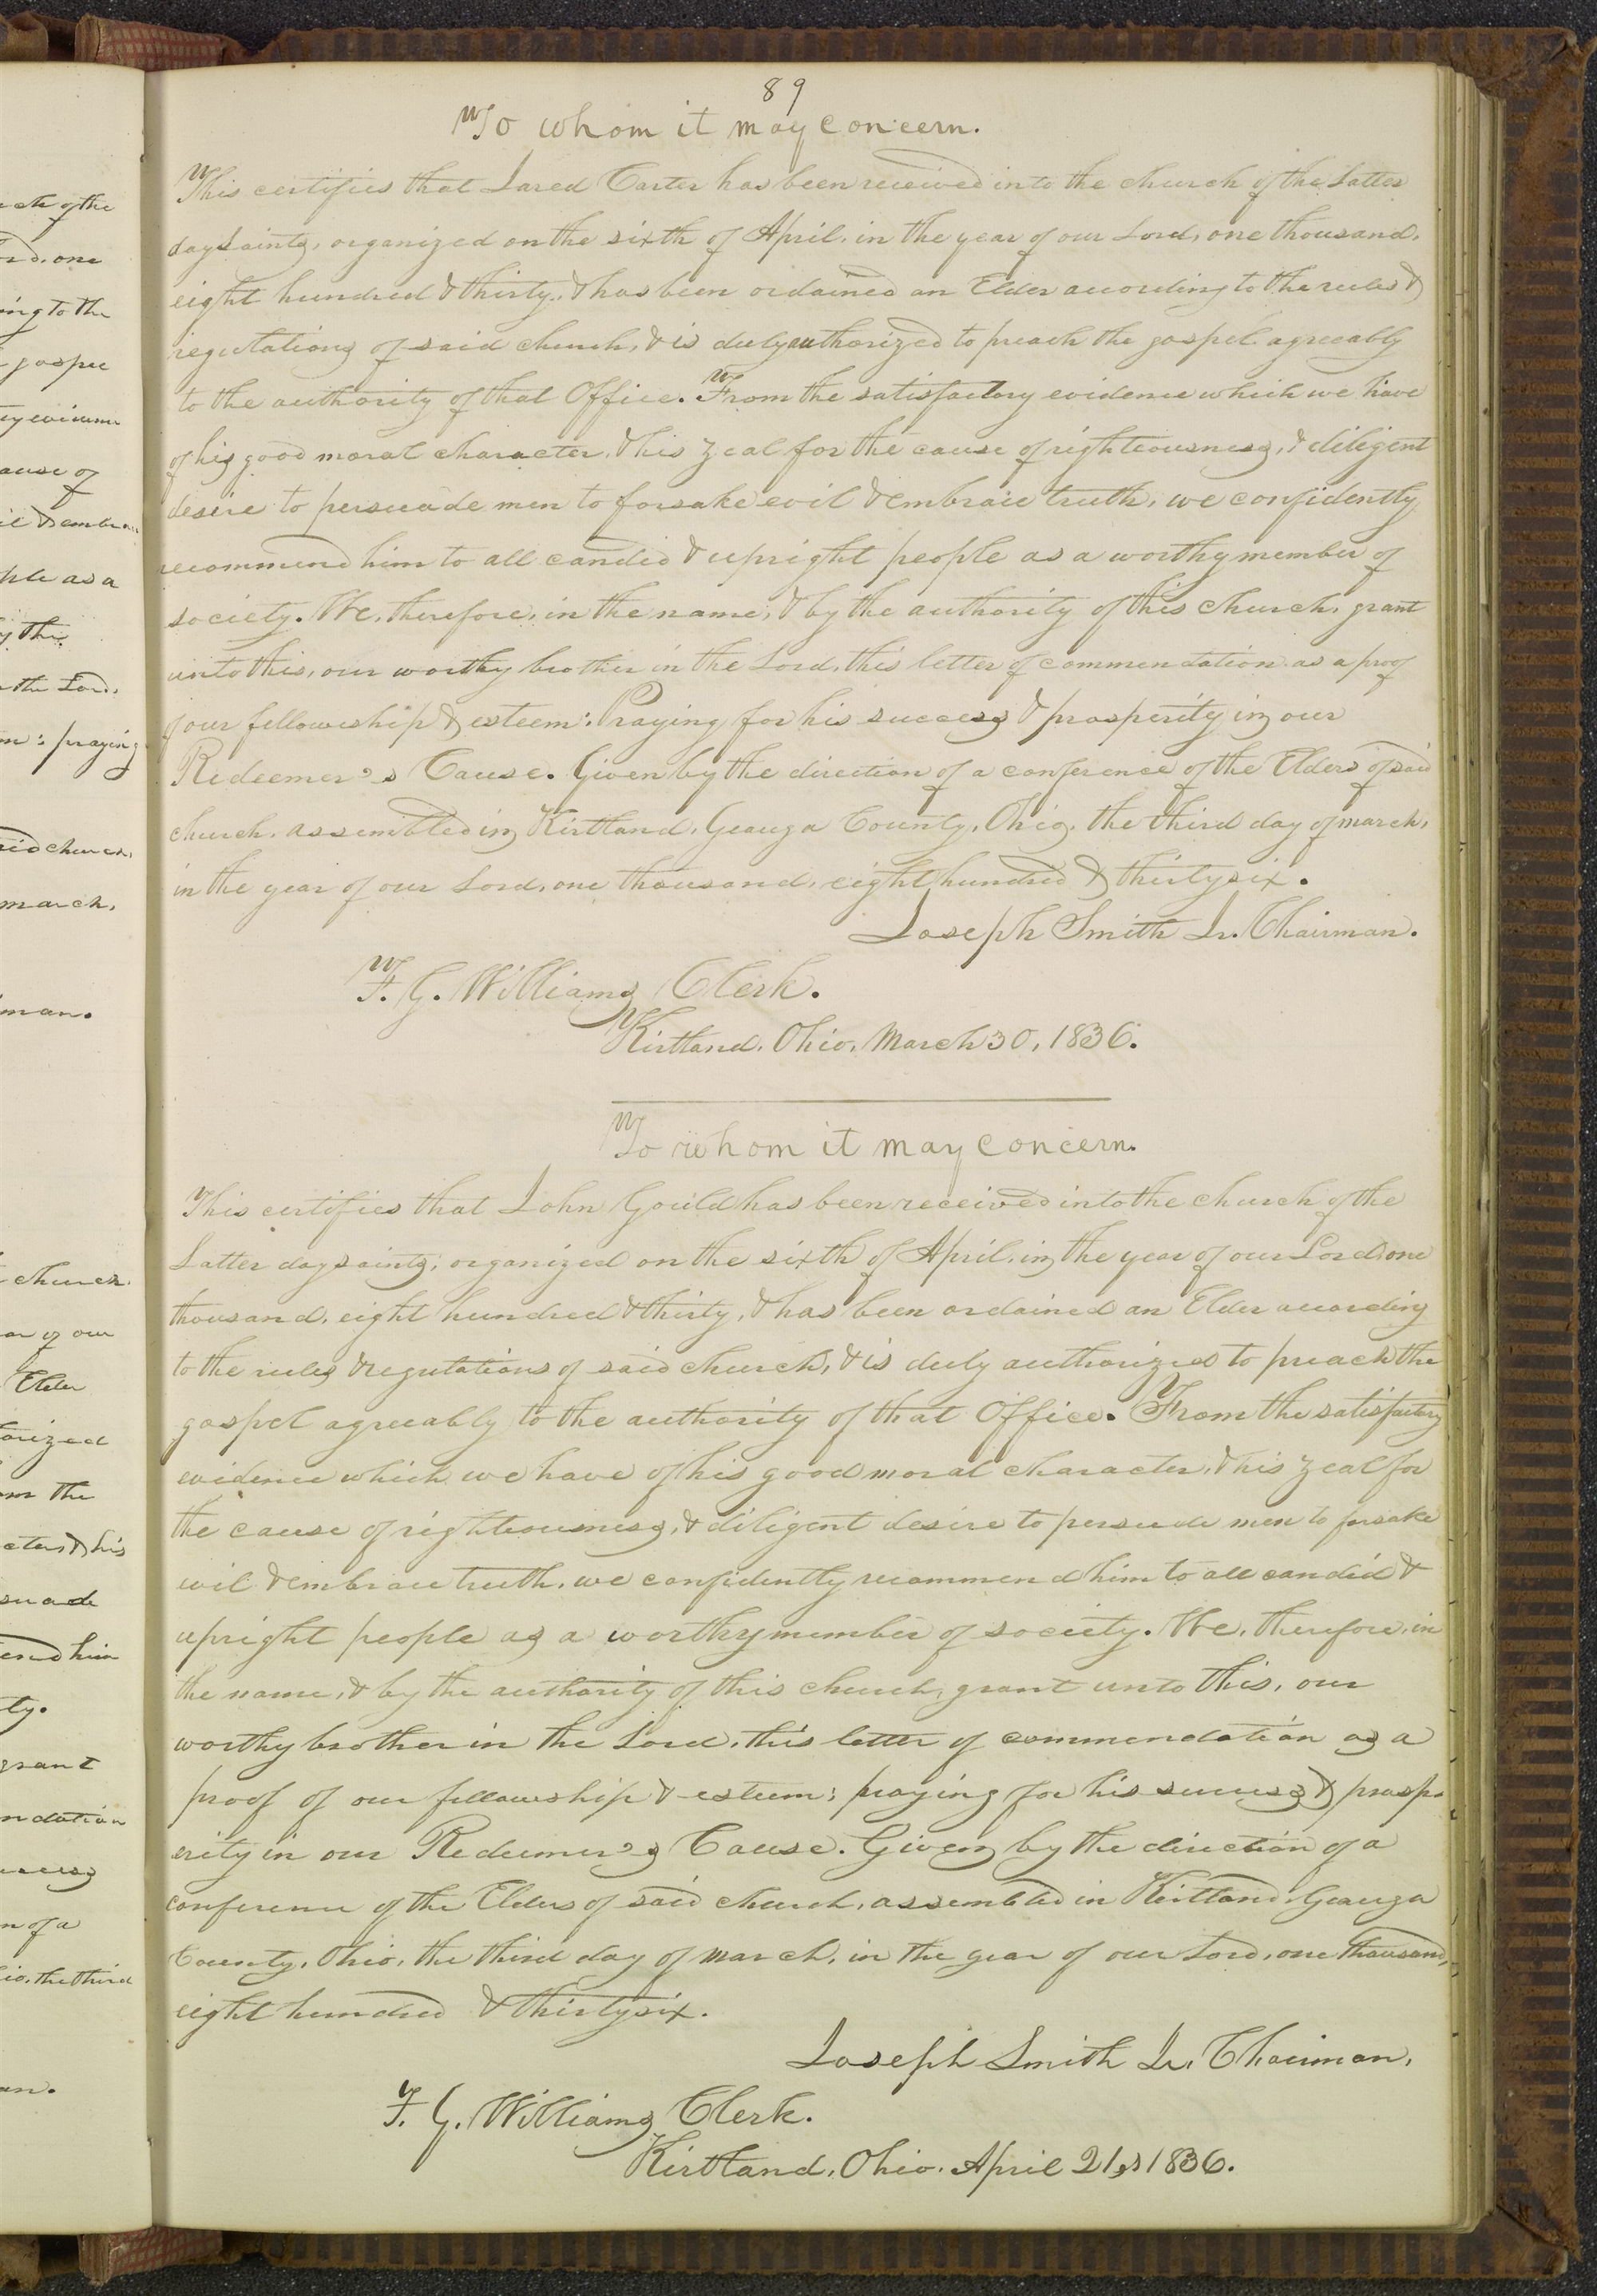 ch of the
one
ing to the
gospel
cause of
il & embrac
ple as a
y the
the Lord,
: praying
said church,
march,
man.
church
ar of our
Elder
orized
the
& his
suade
him
ty.
grant
ndation
n of a
io, the third
an.
89
To whom it may concern.
This certifies that Jared Carter has been received into the church of the Latter
day Saints, organized on the sixth of April, in the year of our Lord, one thousand,
eight hundred & thirty, & has been ordained an Elder according to the rules &
regulations of said church, & is duly authorized to preach the gospel agreeably
to the authority of that Office. From the satisfactory evidence which we have
of his good moral character, & his zeal for the cause of righteousness, & diligent
desire to persuade men to forsake evil & embrace truth, we confidently
recommend him to all candid & upright people as a worthy member of
society. We, therefore, in the name, & by the authority of this church, grant
unto this, our worthy brother in the Lord, this letter of commendation as a proof
of our fellowship & esteem: Praying for his success & prosperity in our
Redeemer's Cause. Given by the direction of a conference of the Elders of said
church, assembled in Kirtland, Geauga County, Ohio, the third day of march,
in the year of our Lord, one thousand, eight hundred & thirty six.
Joseph Smith Jr. Chairman.
F. G. Williams Clerk.
Kirtland, Ohio, March 30, 1836.
To whom it may concern.
This certifies that John Gould has been received into the church of the
Latter day saints, organized on the sixth of April, in the year of our Lord, one
thousand, eight hundred & thirty, & has been ordained an Elder according
to the rules & regulations of said church, & is duly authorized to preach the
gospel agreeably to the authority of that Office. From the satisfactory
evidence which we have of his good moral character, & his zeal for
the cause of righteousness, & diligent desire to persuade men to forsake
evil & embrace truth, we confidently recommend him to all candid &
upright people as a worthy member of society. We, therefore, in
the name, & by the authority of this church, grant unto this, our
worthy brother in the Lord, this letter of commendation as a
proof of our fellowship & esteem; praying for his success & prosp
erity in our Redeemer's Cause. Given by the direction of a
conference of the Elders of said church, assembled in Kirtland, Geauga
County, Ohio, the third day of march, in the year of our Lord, one thousand,
eight hundred & thirty six.
Joseph Smith Jr. Chairman.
F. G. Williams Clerk.
Kirtland, Ohio, April 21, 1836.